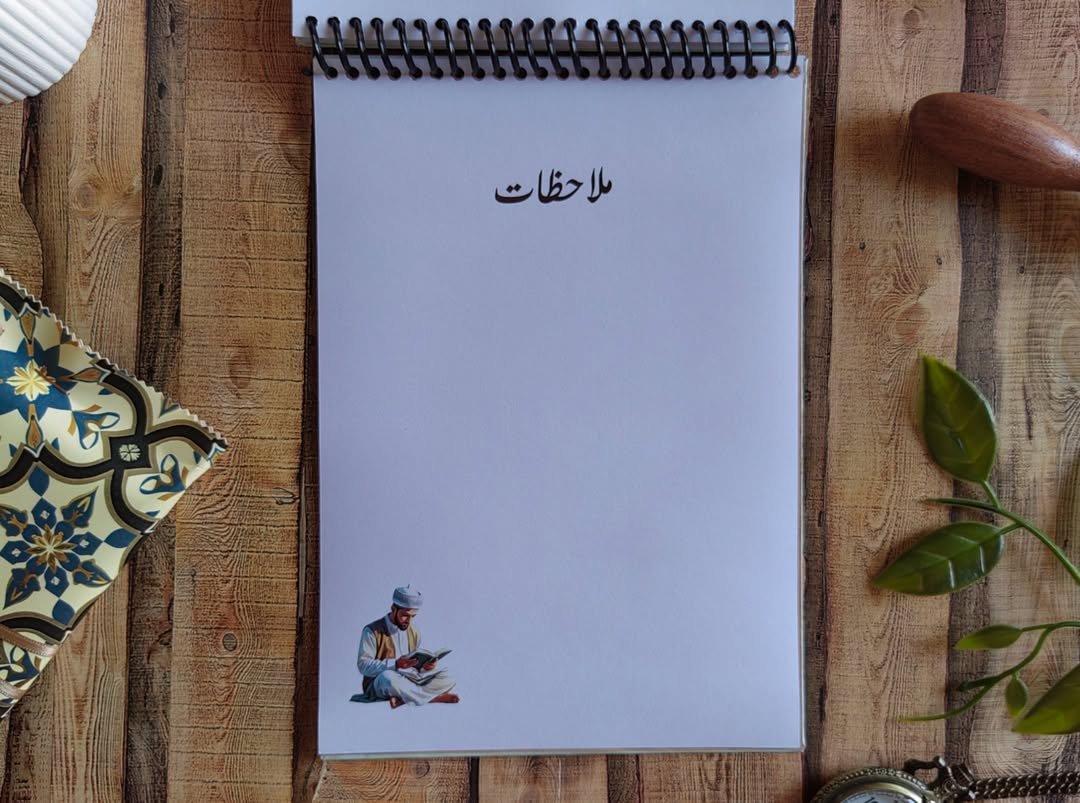 ملاحظات